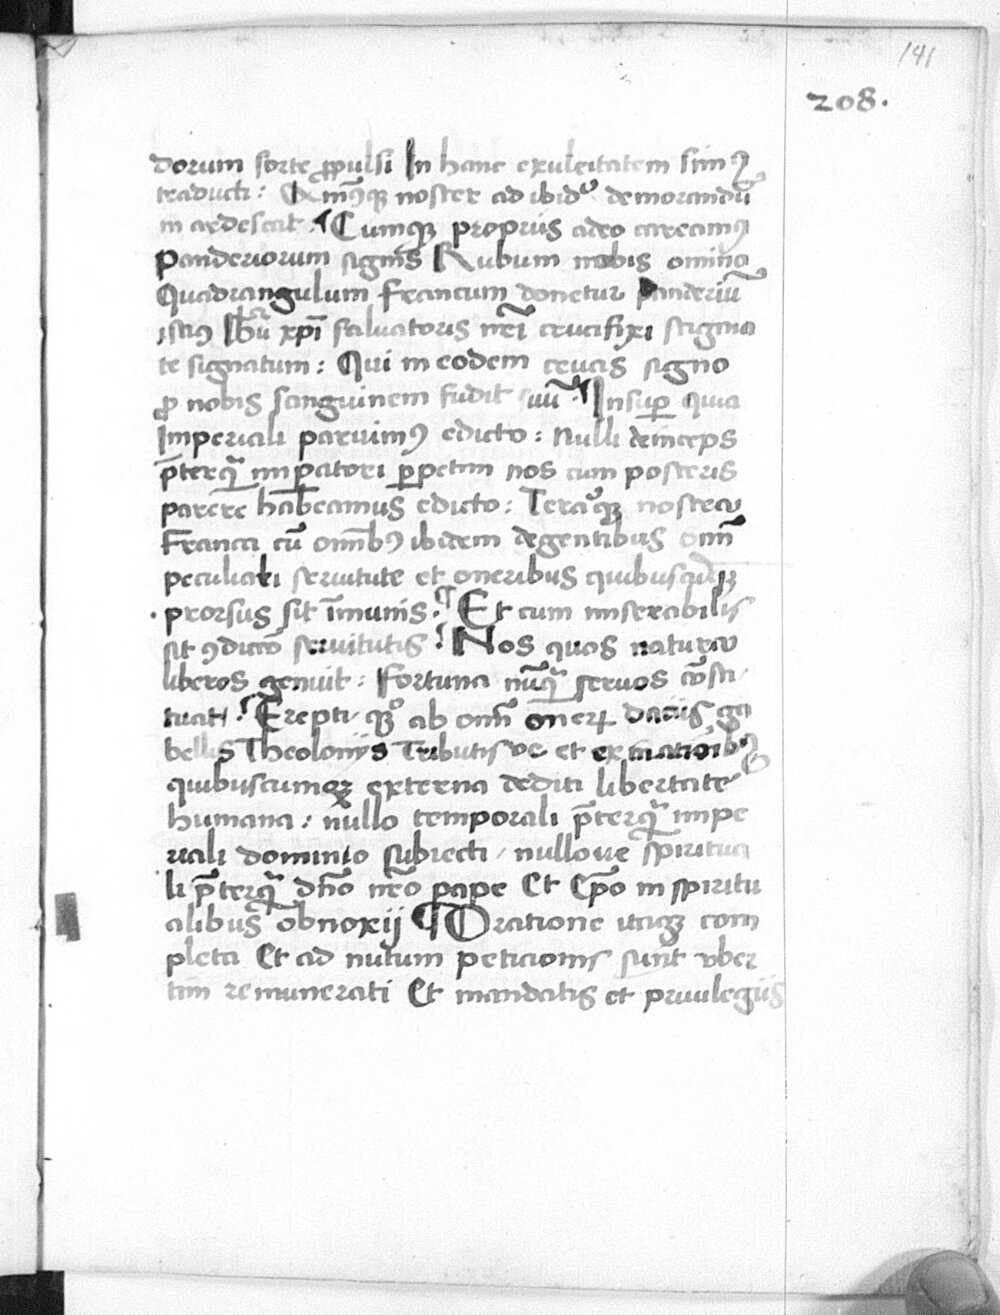 141
208.
dorum sorte ꝓpulsi In hanc exulcitatem simꝰ
traducti: noster ad ibidē demorandū
in ardescat. ¶ Cumqꝫ propriis adeo careamꝰ
Panderiorum signis Rubum nobis omino
Quadrangulum francum donetur panderiū
istiꝰ Ihū xp̄i saluatoris nr̄i crucifixi stigma
te signatum: Qui in eodem crucis signo
ꝓ nobis sanguinem fudit suū. ¶ Insuꝑ quia
Imperiali paruimꝰ edicto: Nulli deinceps
p̄terqꝫ imꝑatori ꝑpetim nos cum posteris
parere habeamus edicto: Terraqꝫ nostra
Franca cū omībꝰ ibidem degentibus omī
peculiari seruitute et oneribus quibuscūqꝫ
prorsus sit īmunis. ¶ Et cum miserabilis
sit ꝯdicio seruitutis ¶ Nos quos natura
liberos genuit: Fortuna nūqꝫ seruos cōsti
tuat. ¶ Erepti qꝫ ab omī onerꝭ daciis ga
bellis Theoloniis Tributis ve et exactioibꝰ
quibuscumqꝫ externa dediti libertate
humana: nullo temporali p̄terqꝫ impe
riali dominio subiecti / nulloue spiritua
li p̄terqꝫ dn̄o nr̄o pape Et Ep̄o in spiritu
alibus obnoxij ¶ Oratione itaqꝫ com
pleta Et ad nutum peticionis sunt vber
tim remunerati Et mandatis et priuilegiis